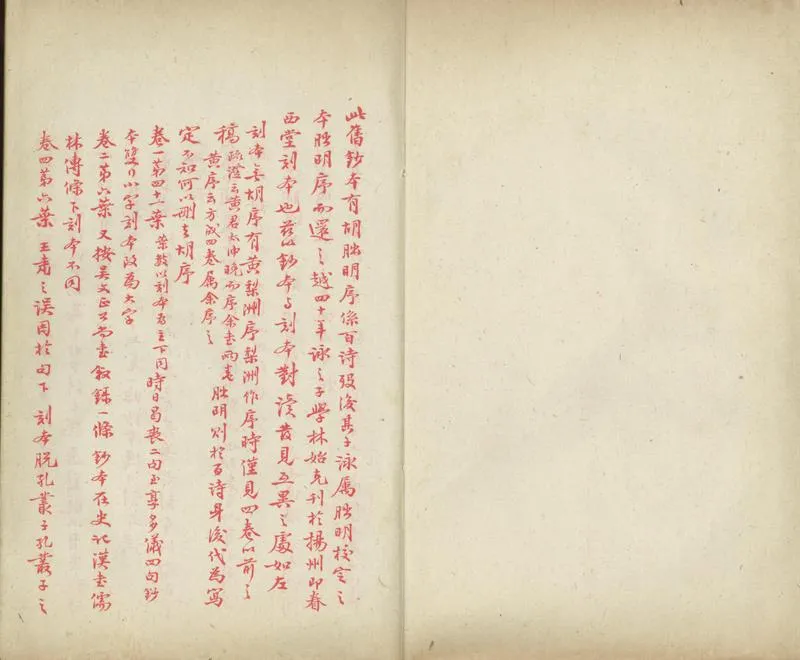 此舊鈔本有胡朏明序係百诗歿後其子詠属朏明校定之
本朏明序而還之越四十年詠之子學林始克刊於揚州即眷
西堂刻本也茲以鈔本与刻本對读昔見互異之處如左
刻本無胡序有黄梨洲序梨洲作序時僅見四卷以前之
稿 黄序云方成四卷属余序之 朏明则於百诗身後代為寫
定不知何以删去胡序
卷一第四十一葉 葉数以刻本為主下同 時日曷喪二句至享多儀四句鈔
本雙行小字刻本改為大字
卷二第六葉 又按吴文正公尚書叙録一條鈔本在史记漢書儒
林傳條下刻本不同
卷四第六葉 王肅之误同於句下 刻本脱孔叢子孔叢子之